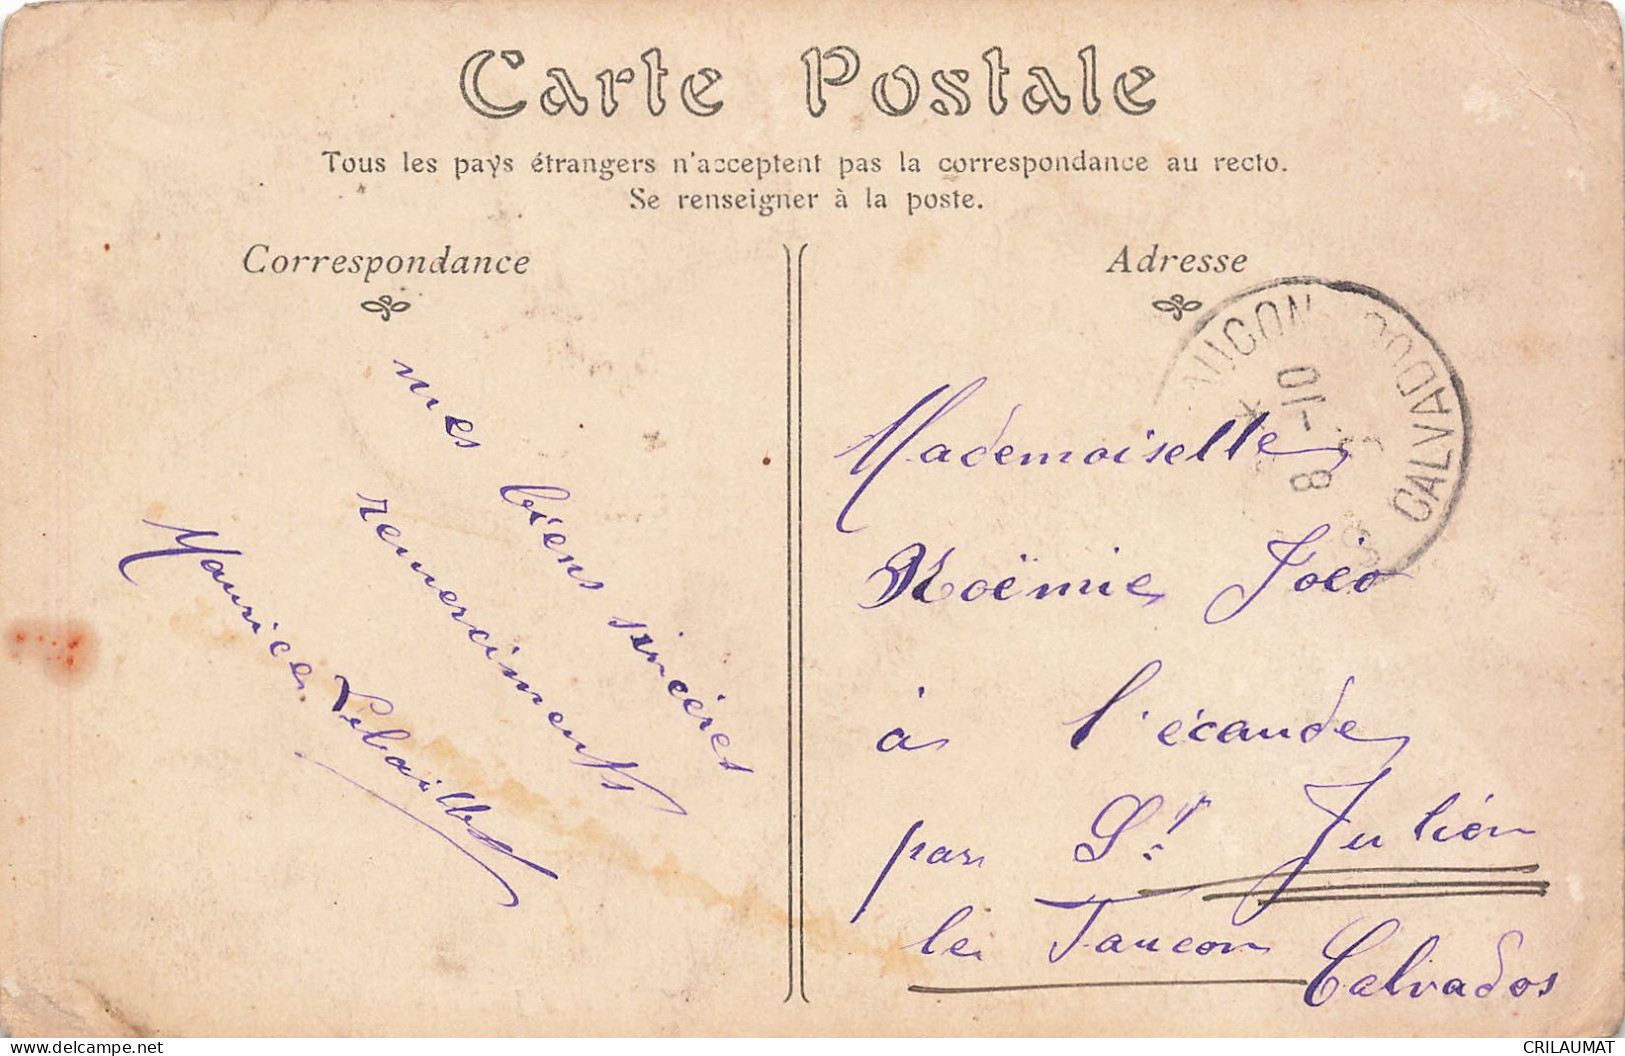 Carte Postale
Tous les pays étrangers n'acceptent pas la correspondance au recto.
Se renseigner à la poste.
Correspondance
mes biens sincères
remerciments
Maurice
Adresse
CALVADOS
01-10
8
Mademoiselle
Noëmie
à l'écande
par St Julien
le Faucon Calvados
CRILAUMAT